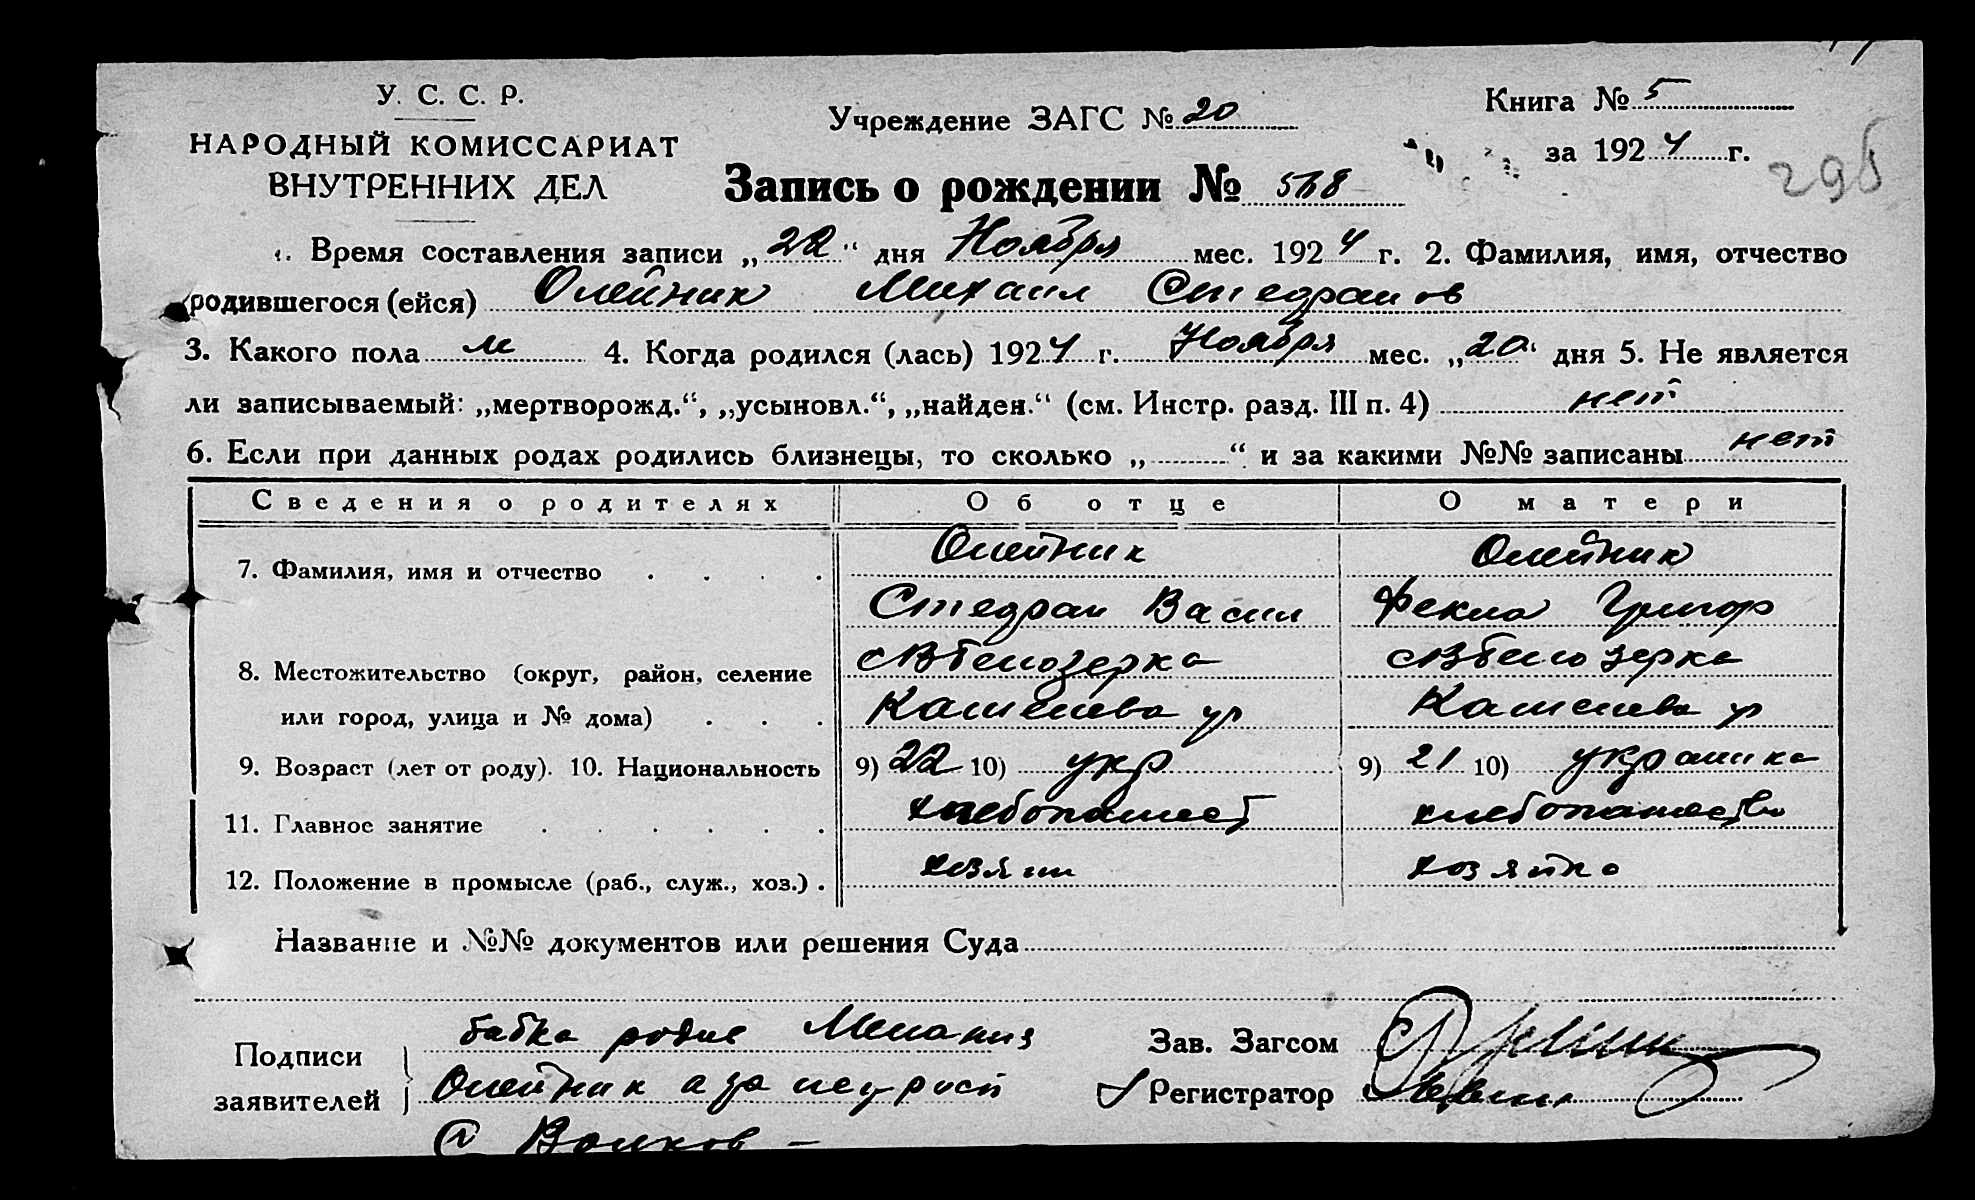 У. С. С. Р.
НАРОДНЫЙ КОМИССАРИАТ
ВНУТРЕННИХ ДЕЛ
Учреждение ЗАГС № 20
Книга № 5
за 1924 г.
296
Запись о рождении № 568
1. Время составления записи „22“ дня Ноября мес. 1924 г. 2. Фамилия, имя, отчество
родившегося (ейся) Олейник Михаил Стефанов
3. Какого пола м 4. Когда родился (лась) 1924 г. Ноября мес. „20“ дня 5. Не является
ли записываемый: „мертворожд.“, „усыновл.“, „найден.“ (см. Инстр. разд. III п. 4) нет
6. Если при данных родах родились близнецы, то сколько „ “ и за какими №№ записаны нет
Сведения о родителях Об отце О матери
7. Фамилия, имя и отчество Олейник Олейник
Стефан Васил Фекла Григор
8. Местожительство (округ, район, селение с В Белозерка с В Белозерка
или город, улица и № дома) ул ул
9. Возраст (лет от роду). 10. Национальность 9) 22 10) укр 9) 21 10) украинка
11. Главное занятие хлебопашест хлебопашество
12. Положение в промысле (раб., служ., хоз.) хозяин хозяйка
Название и №№ документов или решения Суда
Подписи заявителей бабка Мелания
Олейник а за неурост
Волков
Зав. Загсом
Регистратор